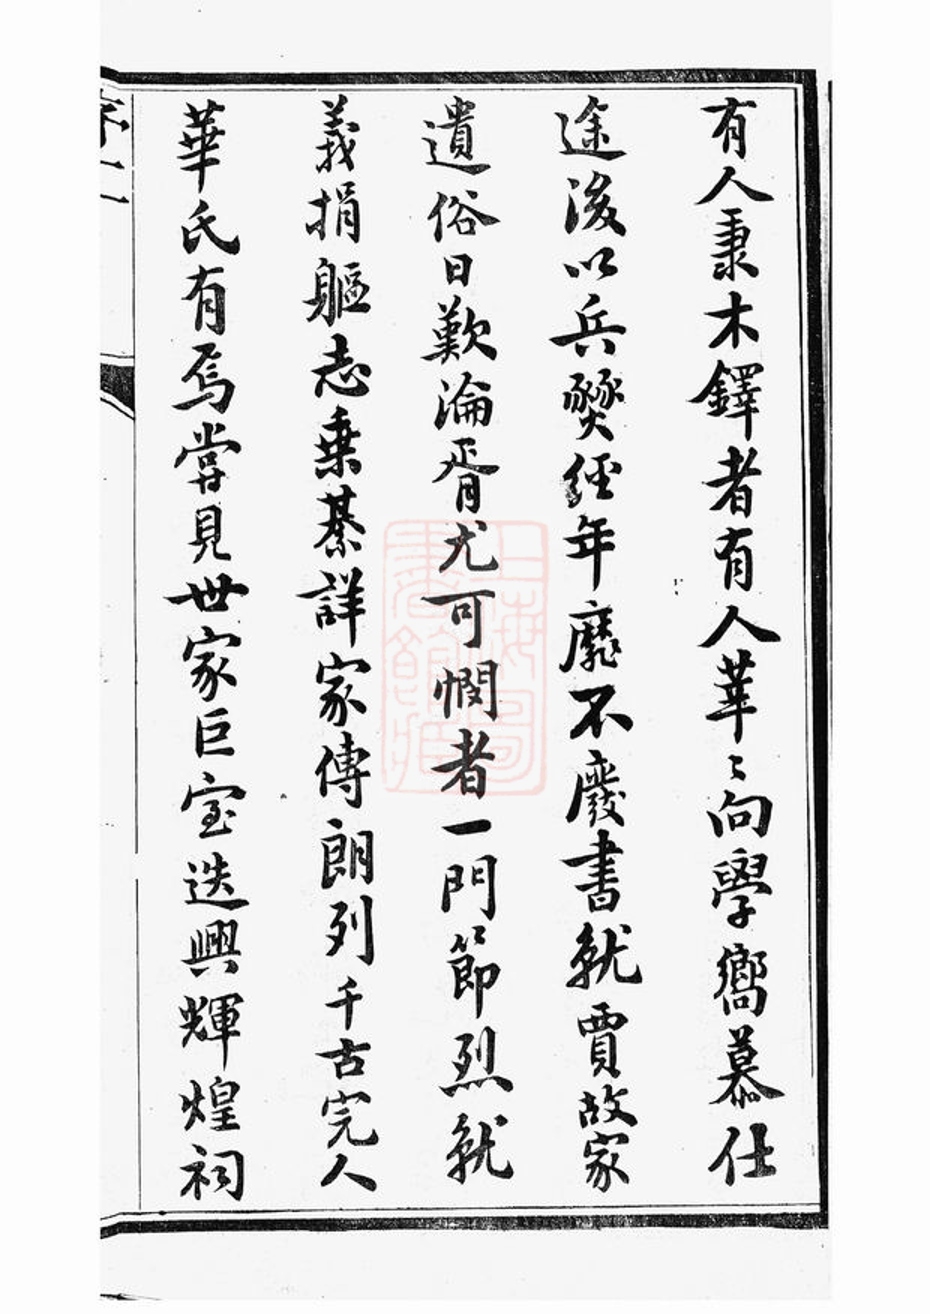 有人秉木鐸者有人莘〻向學嚮慕仕
途後以兵燹經年靡不廢書就賈故家
遺俗日歎淪胥尤可憫者一門節烈就
義捐軀志乘綦詳家傳朗列千古完人
華氏有焉嘗見世家巨室迭興輝煌祠
上海圖書館藏